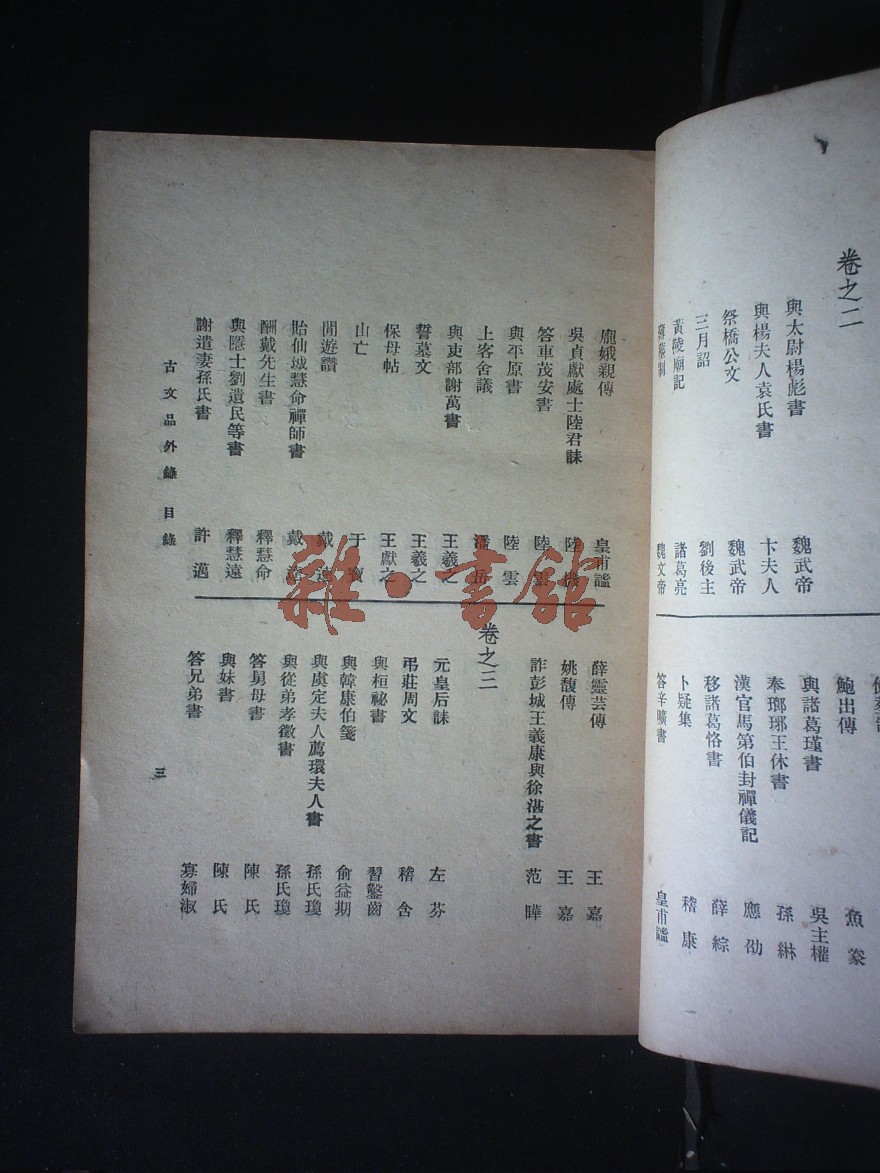 卷之二
與太尉楊彪書 魏武帝
與楊夫人袁氏書 卞夫人
祭橋公文 魏武帝
三月詔 劉後主
黃陵廟記 諸葛亮
魏文帝
鮑出傳 魚豢
與諸葛瑾書 吳主權
奉瑯琊王休書 孫綝
漢官馬第伯封禪儀記 應劭
移諸葛恪書 薛綜
卜疑集 嵇康
答辛曠書 皇甫謐
龐娥親傳 皇甫謐
吳貞獻處士陸君誄 陸機
答車茂安書 陸雲
與平原書 陸雲
上客舍議 潘岳
與吏部謝萬書 王羲之
誓墓文 王羲之
保母帖 王獻之
山亡 于寶
閒遊讚 戴逵
貽仙城慧命禪師書 戴逵
酬戴先生書 釋慧命
與隱士劉遺民等書 釋慧遠
謝遣妻孫氏書 許邁
薛靈芸傳 王嘉
姚馥傳 王嘉
詐彭城王義康與徐湛之書 范曄
卷之三
元皇后誄 左芬
弔莊周文 稽含
與桓祕書 習鑿齒
與韓康伯箋 俞益期
與虞定夫人薦環夫人書 孫氏瓊
與從弟孝徵書 孫氏瓊
答舅母書 陳氏
與妹書 陳氏
答兄弟書 寡婦淑
古文品外錄 目錄
三
雜·書館